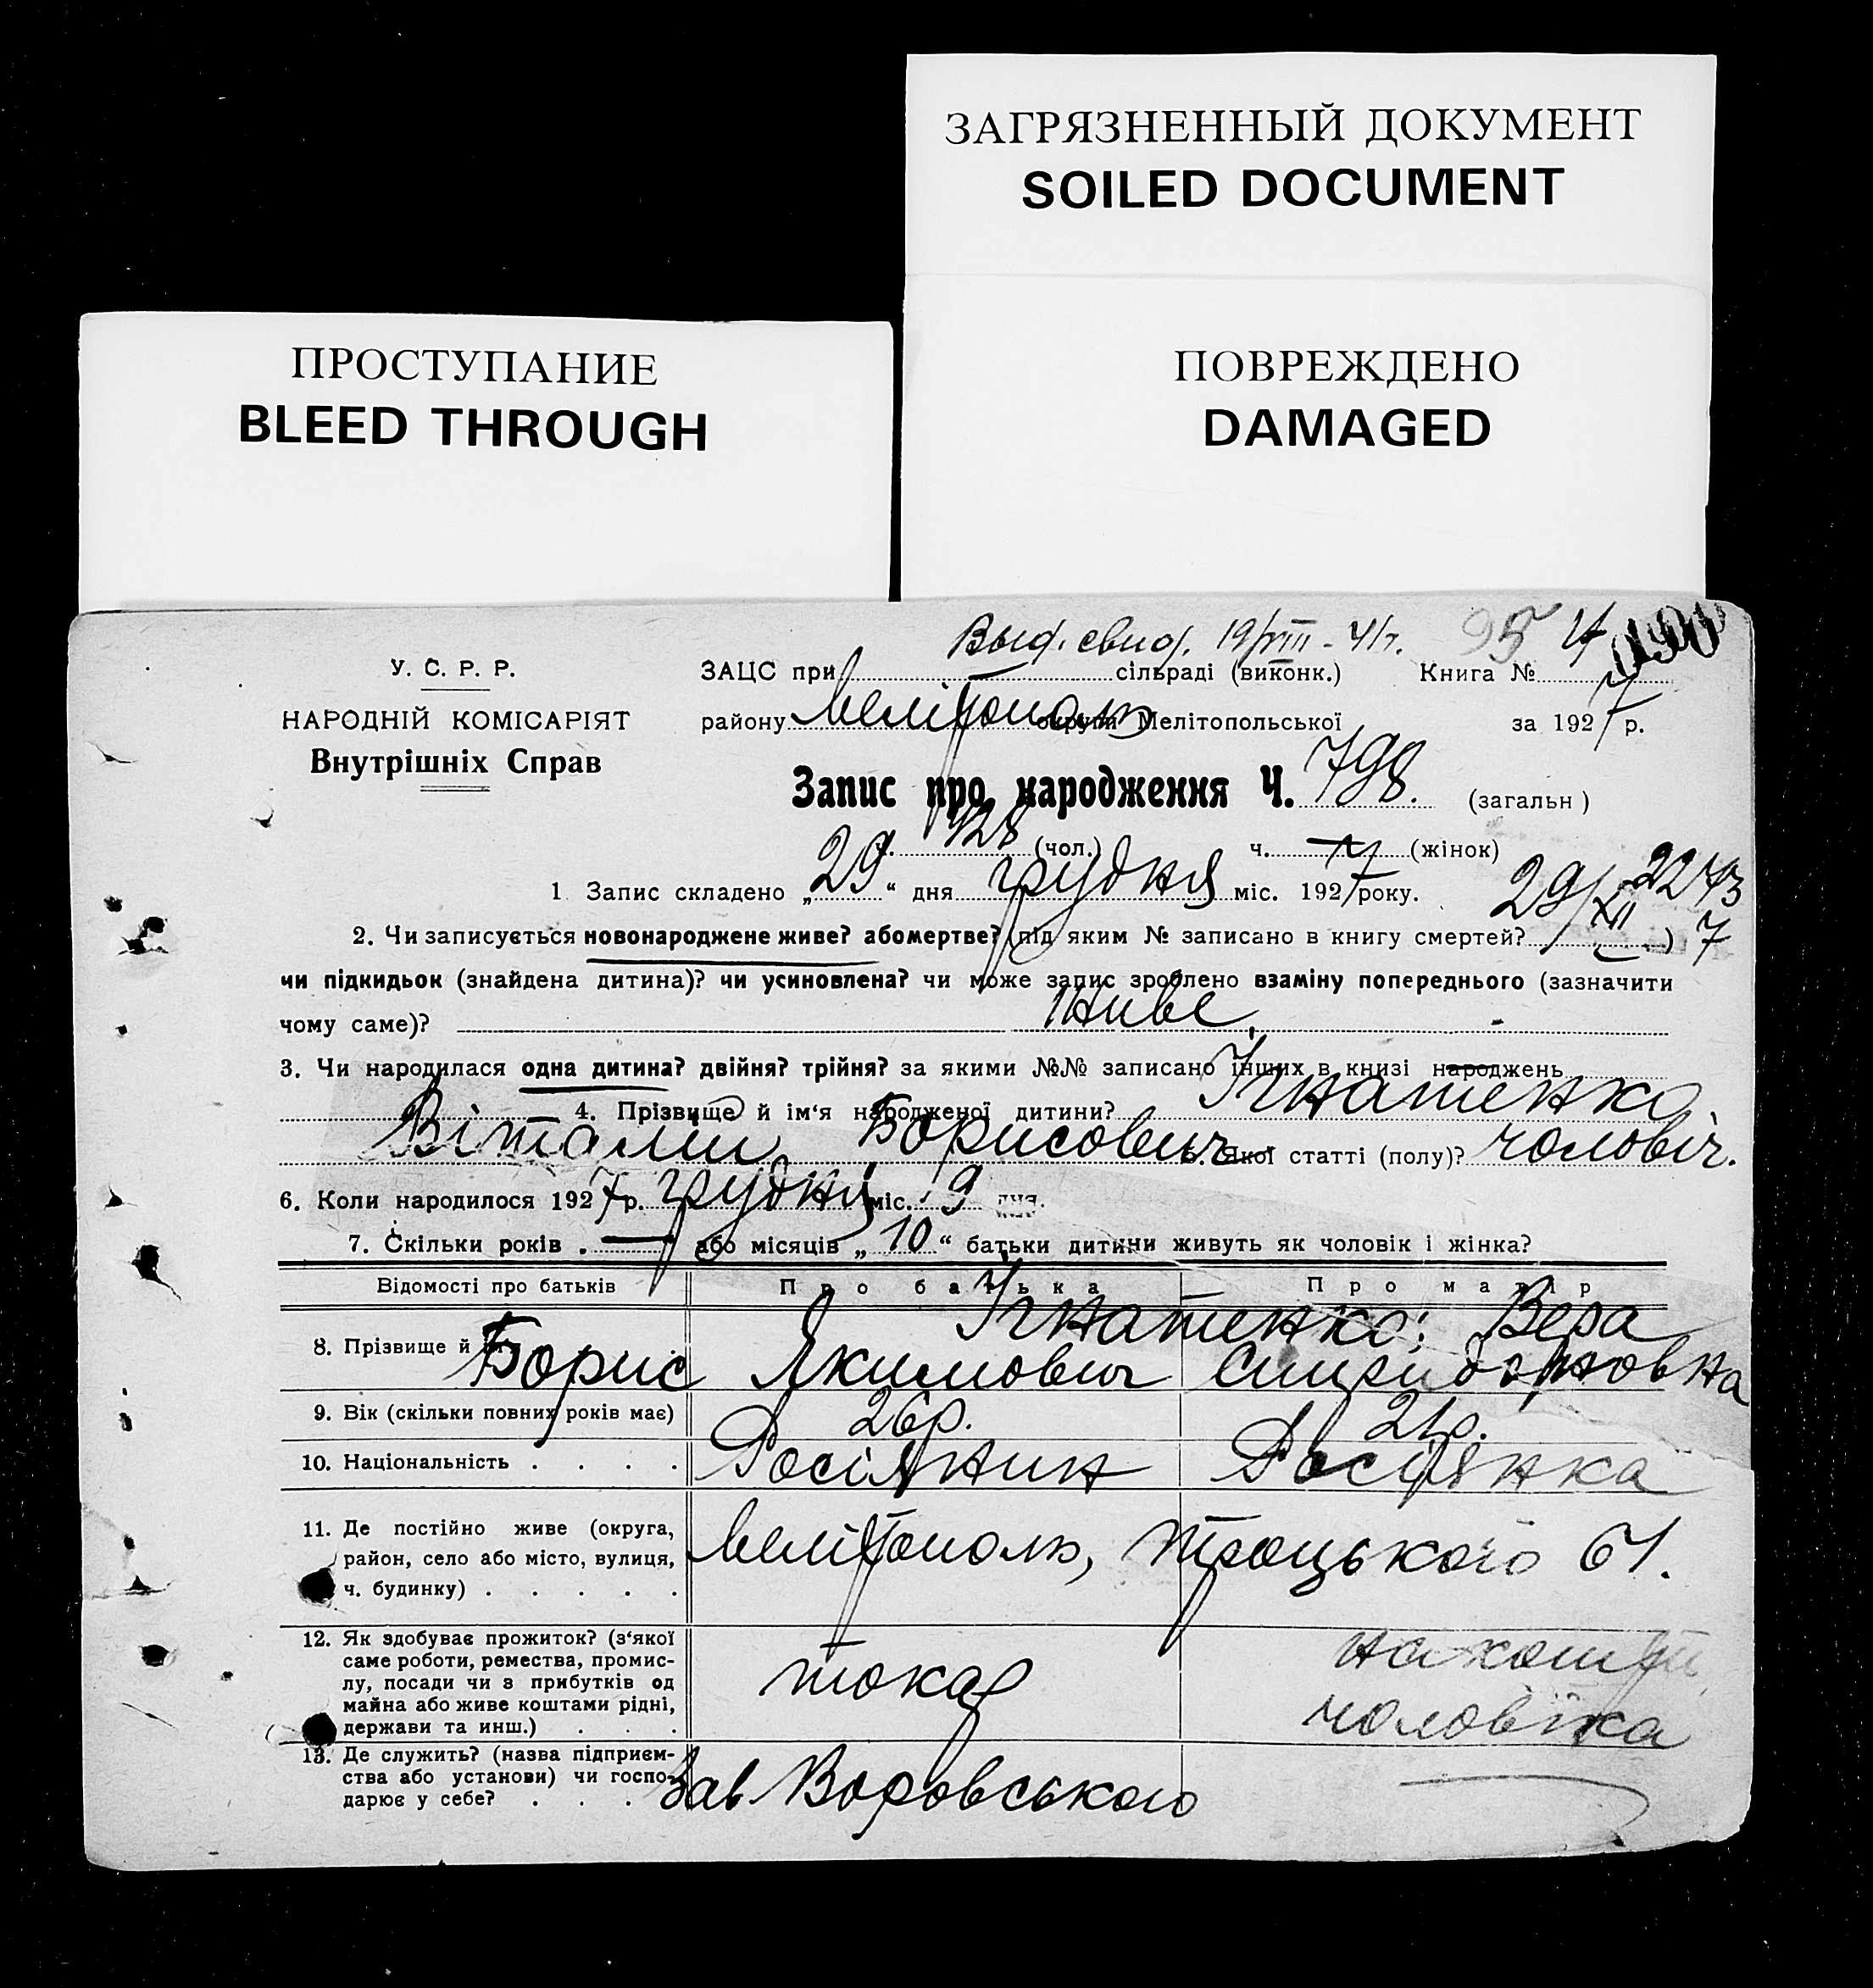 ЗАГРЯЗНЕННЫЙ ДОКУМЕНТ
SOILED DOCUMENT
ПРОСТУПАНИЕ
BLEED THROUGH
ПОВРЕЖДЕНО
DAMAGED
Выд. свид. 19/VIII - 41г. 95
У. С. Р. Р.
НАРОДНІЙ КОМІСАРІЯТ
Внутрішніх Справ
ЗАЦС при сільраді (виконк.) Книга №
району Мелітополь округи Мелітопольської за 1927 р.
Запис про народження Ч. 798. (загальн)
ч. 428 (чол.) ч. (жінок)
1 Запис складено „29“ дня грудня міс. 1927 року.
2. Чи записується новонароджене живе? або мертве? (під яким № записано в книгу смертей? ) 29/XII 7
чи підкидьок (знайдена дитина)? чи усиновлена? чи може запис зроблено взаміну попереднього (зазначити
чому саме)? Живе
3. Чи народилася одна дитина? двійня? трійня? за якими №№ записано інших в книзі народжень
4. Прізвище й ім'я народженої дитини? Ігнатенко
Віталій Борисович Якої статті (полу)? чоловіч.
6. Коли народилося 1927 р. грудня міс. 9 дня.
7. Скільки років — або місяців „10“ батьки дитини живуть як чоловік і жінка?
Відомості про батьків Про батька Про матір
8. Прізвище й Ігнатенко: Вера
Борис Якимович Спиридоновна
9. Вік (скільки повних років має) 26р. 21р.
10. Національність . . . . Росіянин Росіянка
11. Де постійно живе (округа,
район, село або місто, вулиця,
ч. будинку) . . . . .
Мелітополь, Троцького 61.
12. Як здобуває прожиток? (з'якої
саме роботи, ремества, промис-
лу, посади чи з прибутків од
майна або живе коштами рідні,
держави та инш.) . . .
токар
на кошти
чоловіка
13. Де служить? (назва підприєм-
ства або установи) чи госпо-
дарює у себе? . . .
Зав Воровського